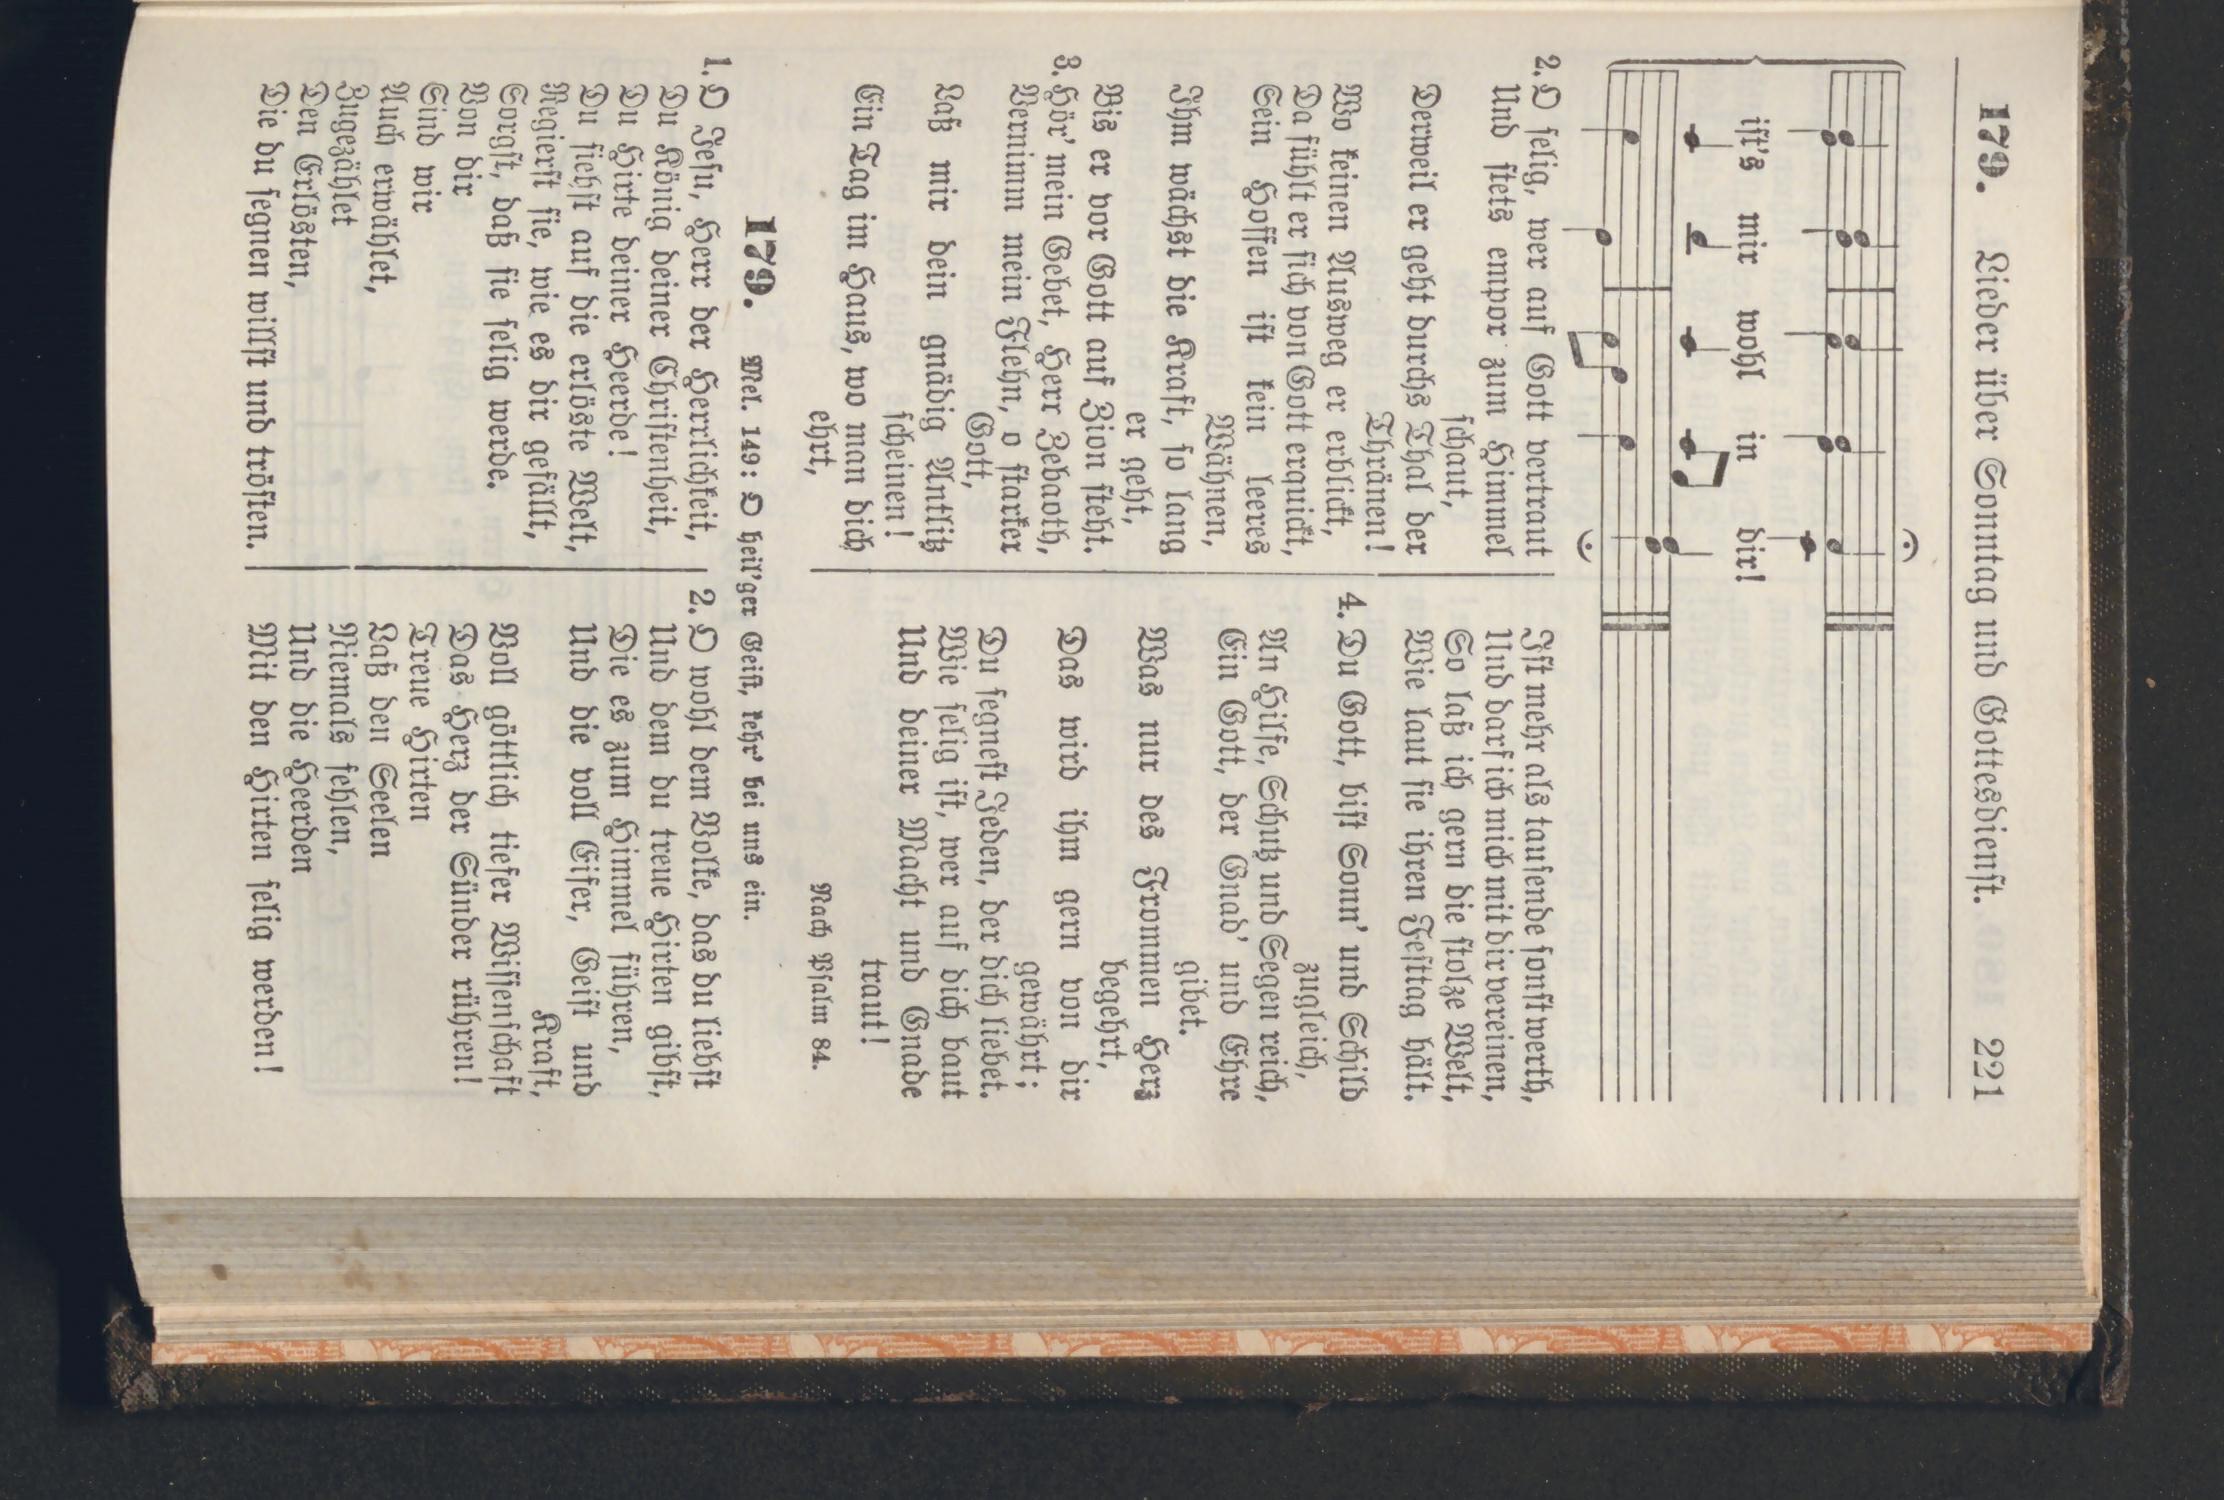 179. Lieder über Sonntag und Gottesdienst. 221
ist's mir wohl in dir!
2. O selig, wer auf Gott vertraut
Und stets empor zum Himmel
schaut,
Derweil er geht durchs Thal der
Thränen!
Wo keinen Ausweg er erblickt,
Da fühlt er sich von Gott erquickt,
Sein Hoffen ist kein leeres
Wähnen,
Ihm wächst die Kraft, so lang
er geht,
Bis er vor Gott auf Zion steht.
3. Hör' mein Gebet, Herr Zebaoth,
Vernimm mein Flehn, o starker
Gott,
Laß mir dein gnädig Antlitz
scheinen!
Ein Tag im Haus, wo man dich
ehrt,
Ist mehr als tausende sonst werth,
Und darf ich mich mit dir vereinen,
So laß ich gern die stolze Welt,
Wie laut sie ihren Festtag hält.
4. Du Gott, bist Sonn' und Schild
zugleich,
An Hilfe, Schutz und Segen reich,
Ein Gott, der Gnad' und Ehre
gibet.
Was nur des Frommen Herz
begehrt,
Das wird ihm gern von dir
gewährt;
Du segnest Jeden, der dich liebet.
Wie selig ist, wer auf dich baut
Und deiner Macht und Gnade
traut!
Nach Psalm 84.
179. Mel. 149: O heil'ger Geist, kehr' bei uns ein.
1. O Jesu, Herr der Herrlichkeit,
Du König deiner Christenheit,
Du Hirte deiner Heerde!
Du siehst auf die erlöste Welt,
Regierst sie, wie es dir gefällt,
Sorgst, daß sie selig werde.
Von dir
Sind wir
Auch erwählet,
Zugezählet
Den Erlösten,
Die du segnen willst und trösten.
2. O wohl dem Volke, das du liebst
Und dem du treue Hirten gibst,
Die es zum Himmel führen,
Und die voll Eifer, Geist und
Kraft,
Voll göttlich tiefer Wissenschaft
Das Herz der Sünder rühren!
Treue Hirten
Laß den Seelen
Niemals fehlen,
Und die Heerden
Mit den Hirten selig werden!